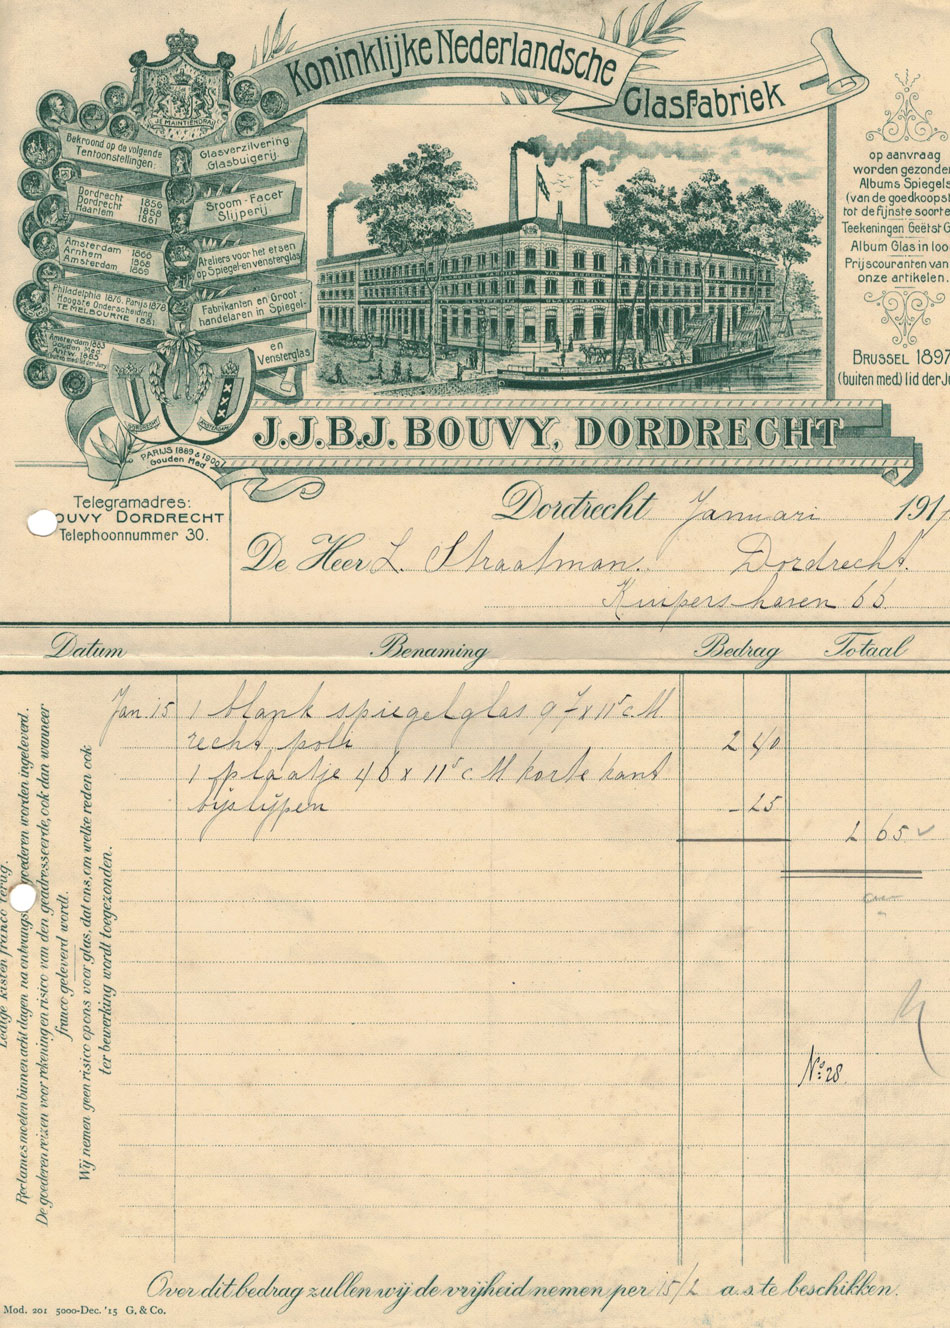 Koninklijke Nederlandsche
Glasfabriek
JE MAINTIENDRAI
Bekroond op de volgende
Tentoonstellingen:
Dordrecht 1856
Dordrecht 1858
Haarlem 1861
Amsterdam 1866
Arnhem 1868
Amsterdam 1869
Philadelphia 1876. Parijs 1878
Hoogste Onderscheiding
TE MELBOURNE 1881
Amsterdam 1883
Gouden Med.
Antw. 1885
Glasverzilvering
Glasbuigerij.
Stroom-Facet
Slijperij
Ateliers voor het etsen
op Spiegel-en vensterglas
Fabrikanten en Groot
handelaren in Spiegel-
en
Vensterglas
DORDRECHT
AMSTERDAM
PARIJS 1889 & 1900
Gouden Med
op aanvraag
worden gezonden
Albums Spiegels
(van de goedkoopst
tot de fijnste soorte
Teekeningen Geëtst G
Album Glas in loo
Prijscouranten van
onze artikelen.
BRUSSEL 1897
(buiten med) lid der Ju
J.J.B.J. BOUVY, DORDRECHT
Telegramadres:
OUVY DORDRECHT
Telephoonnummer 30.
Dordrecht Januari 191
De Heer L. Straatman. Dordrecht.
Kuipershaven 66
Datum Benaming Bedrag Totaal
Jan. 15 1 blank spiegelglas 97 x 11⁵ c.M.
recht poli 2 40
1 plaatje 46 x 11⁵ c M. korte kant
bijslijpen - 25
2 65
No: 28
Ledige kisten franco terug.
Reclames moeten binnen acht dagen na ontvangst goederen worden ingeleverd.
De goederen reizen voor rekening en risico van den geadresseerde, ook dan wanneer
franco geleverd wordt.
Wij nemen geen risico op ons voor glas, dat ons, om welke reden ook
ter bewerking wordt toegezonden.
Over dit bedrag zullen wij de vrijheid nemen per 15/2 a.s. te beschikken.
Mod. 201 5000-Dec. '15 G. & Co.